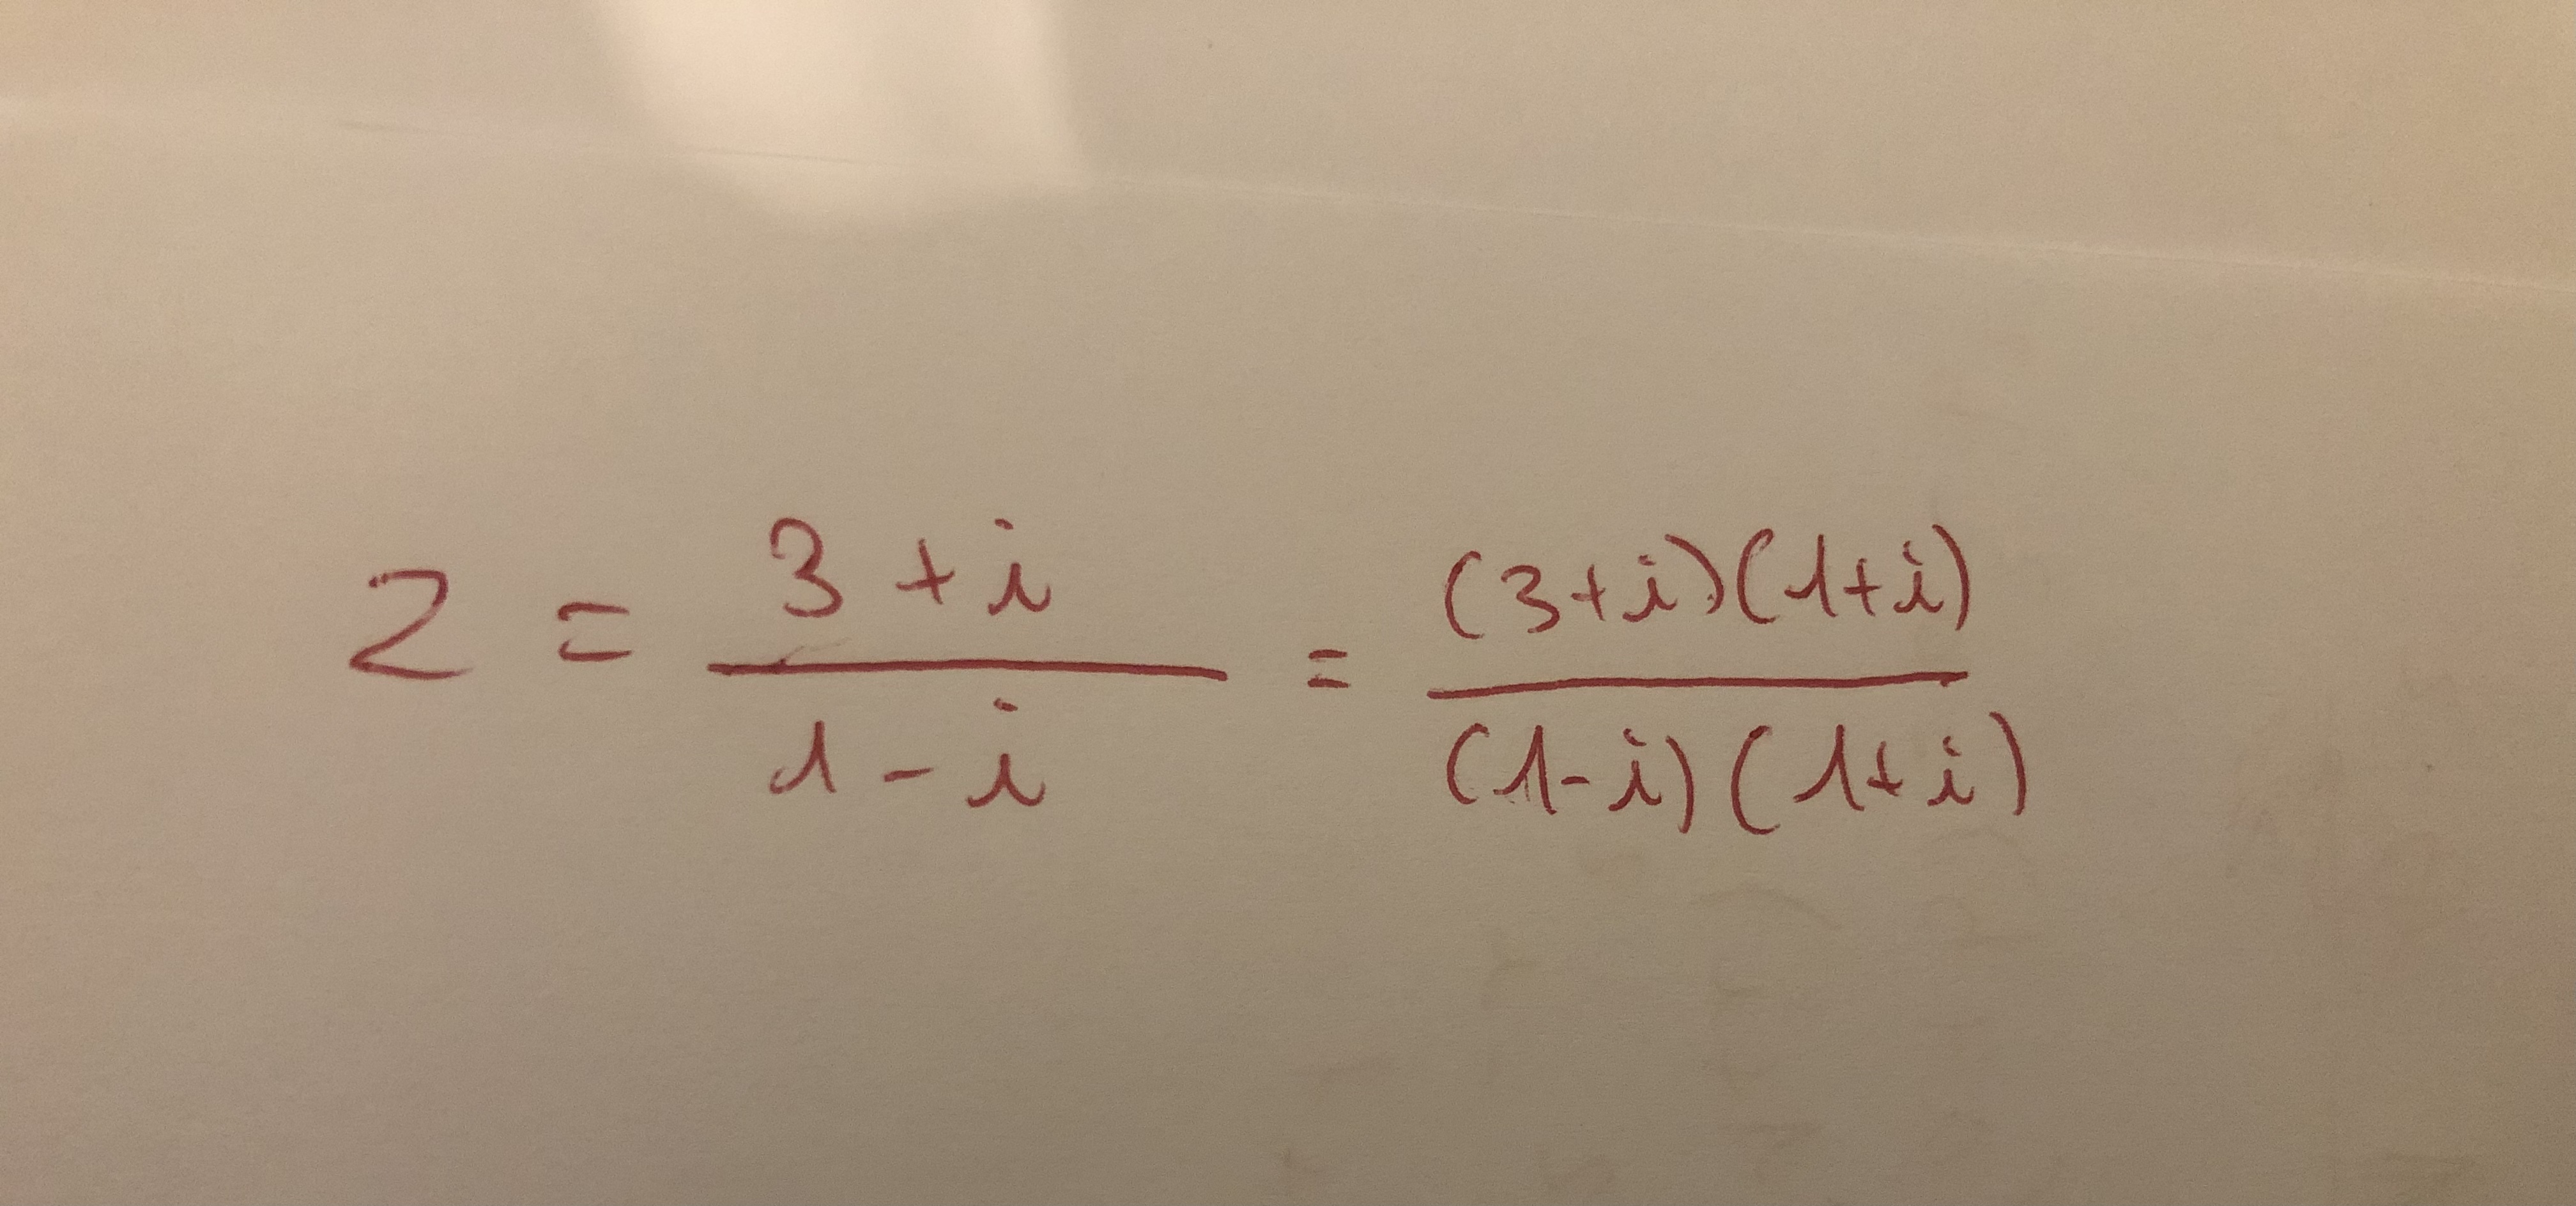 z = \frac{3+i}{1-i} = \frac{(3+i)(1+i)}{(1-i)(1+i)}